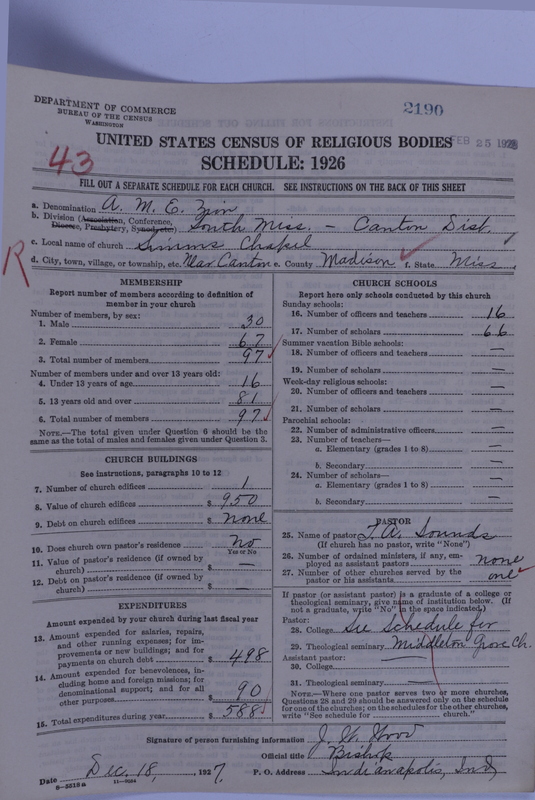 DEPARTMENT OF COMMERCE
BUREAU OF THE CENSUS
WASHINGTON
2190
UNITED STATES CENSUS OF RELIGIOUS BODIES
FEB 25 1928
SCHEDULE: 1926
43
FILL OUT A SEPARATE SCHEDULE FOR EACH CHURCH. SEE INSTRUCTIONS ON THE BACK OF THIS SHEET
a. Denomination A. M. E. Zion
b. Division (Association, Conference, Diocese, Presbytery, Synod, etc.) South Miss. - Canton Dist.
c. Local name of church Simms Chapel
R
d. City, town, village, or township, etc. Near Canton e. County Madison f. State Miss.
MEMBERSHIP
Report number of members according to definition of
member in your church
Number of members, by sex:
1. Male 30
2. Female 67
3. Total number of members 97
Number of members under and over 13 years old:
4. Under 13 years of age 16
5. 13 years old and over 81
6. Total number of members 97
NOTE.—The total given under Question 6 should be the
same as the total of males and females given under Question 3.
CHURCH BUILDINGS
See instructions, paragraphs 10 to 12
7. Number of church edifices 1
8. Value of church edifices $ 950
9. Debt on church edifices $ none
10. Does church own pastor's residence no
Yes or No
11. Value of pastor's residence (if owned by
church) $ —
12. Debt on pastor's residence (if owned by
church) $ —
EXPENDITURES
Amount expended by your church during last fiscal year
13. Amount expended for salaries, repairs,
and other running expenses; for im-
provements or new buildings; and for
payments on church debt $ 498
14. Amount expended for benevolences, in-
cluding home and foreign missions; for
denominational support; and for all
other purposes $ 90
15. Total expenditures during year $ 588
CHURCH SCHOOLS
Report here only schools conducted by this church
Sunday schools:
16. Number of officers and teachers 16
17. Number of scholars 66
Summer vacation Bible schools:
18. Number of officers and teachers —
19. Number of scholars —
Week-day religious schools:
20. Number of officers and teachers —
21. Number of scholars —
Parochial schools:
22. Number of administrative officers —
23. Number of teachers—
a. Elementary (grades 1 to 8) —
b. Secondary —
24. Number of scholars—
a. Elementary (grades 1 to 8) —
b. Secondary —
PASTOR
25. Name of pastor T. A. Sounds
(If church has no pastor, write "None")
26. Number of ordained ministers, if any, em-
ployed as assistant pastors none
27. Number of other churches served by the
pastor or his assistants one
If pastor (or assistant pastor) is a graduate of a college or
theological seminary, give name of institution below. (If
not a graduate, write "No" in the space indicated)
Pastor:
28. College See Schedule for
29. Theological seminary Middleton Grove Ch.
Assistant pastor:
30. College —
31. Theological seminary —
NOTE.—Where one pastor serves two or more churches,
Questions 28 and 29 should be answered only on the schedule
for one of the churches; on the schedules for the other churches,
write "See schedule for church."
Signature of person furnishing information J. W. Wood
Official title Bishop
Date Dec. 18, 1927. P. O. Address Indianapolis, Ind,
8-5318a 11-9034